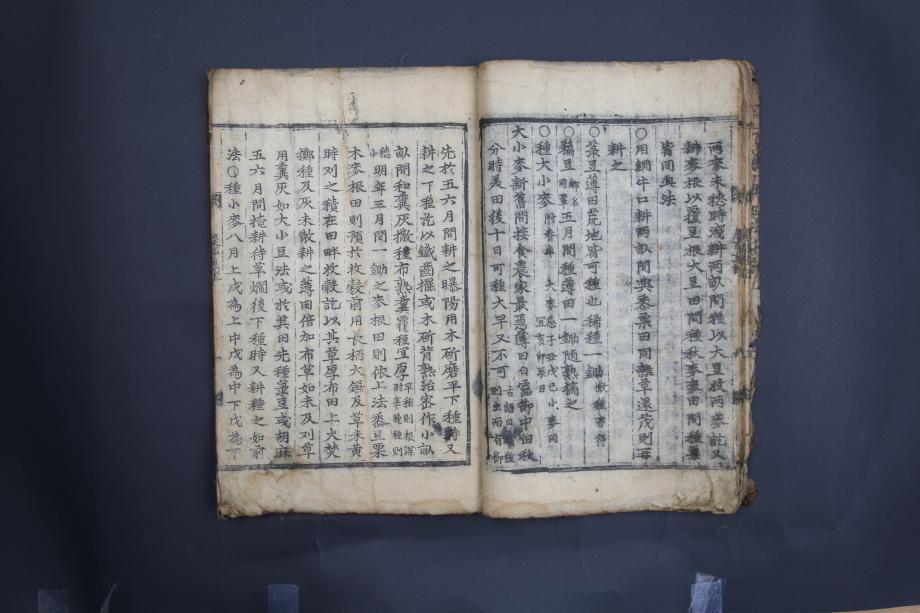 兩麥未穗時淺耕兩畝間種以大豆收兩麥訖又
耕麥根以覆豆根大豆田間種秋麥麥田間種粟
皆同此法
○用網牛口耕兩畝間與黍粟田間雜草還茂則
耕之
○菉豆薄田荒地皆可種也稀種一鋤
○穭豆鄕名五月間種薄田一鋤隨熟摘之
○種大小麥附春麥
大小麥新舊間接食農家最急薄田白露節中田秋
分時美田後十日可種大早又不可古語曰種則虫而有節
先於五六月間耕之曝陽用木斫磨平下種時又
耕之下種訖以鐵齒擺或木斫背熟治密作小畝
畝間和糞灰撒種布熟糞覆種宜厚早種則根深耐寒晩種則
穗小明年三月間一鋤之麥根田則依上法黍豆粟
木麥根田則預於收穀前用長柄大鎌及草未黃
時刈之積在田畔收穀訖以其草厚布田上火焚
擲種及灰未散耕之薄田倍加布草如未及刈草
用糞灰如大小豆法或於其田先種菉豆或胡麻
五六月間掩耕待草爛後下種時又耕種之如前
法○種小麥八月上戊爲上中戊爲中下戊爲下